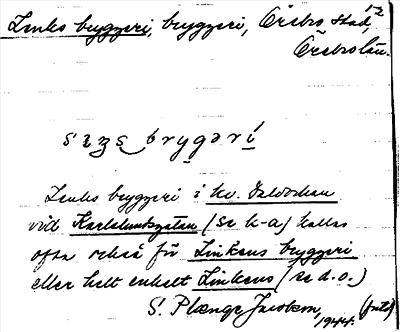 Links bryggeri, bryggeri, Örebro stad, 12
Örebro län.
bryggeri
Links bryggeri i kv.
vid Karlslundsgatan (se k-a) kallas
ofta också för Linkens bryggeri
eller helt enkelt Linkens (se d.o.)
S. Plænge Jacobson, 1944.